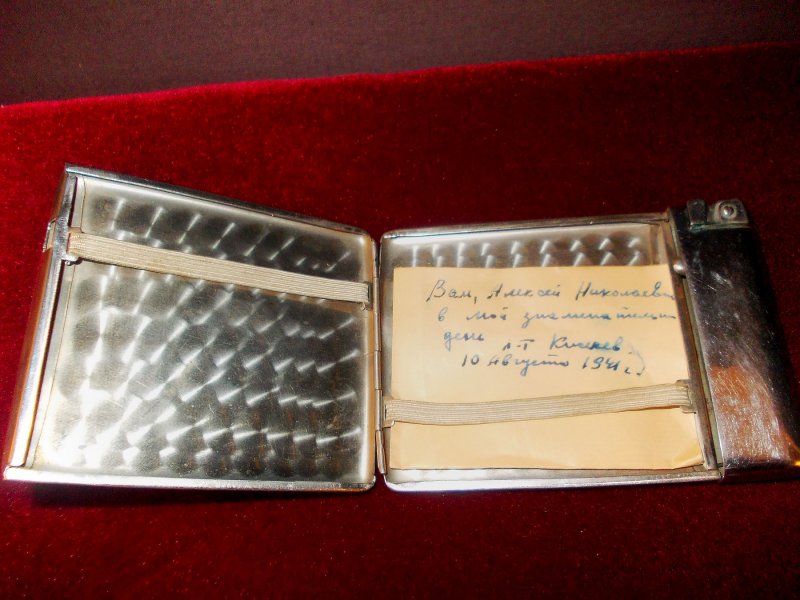 Вам, Алексей Николаевич
в мой знаменательный
день
л-т Киселев
10 августа 1941 г.